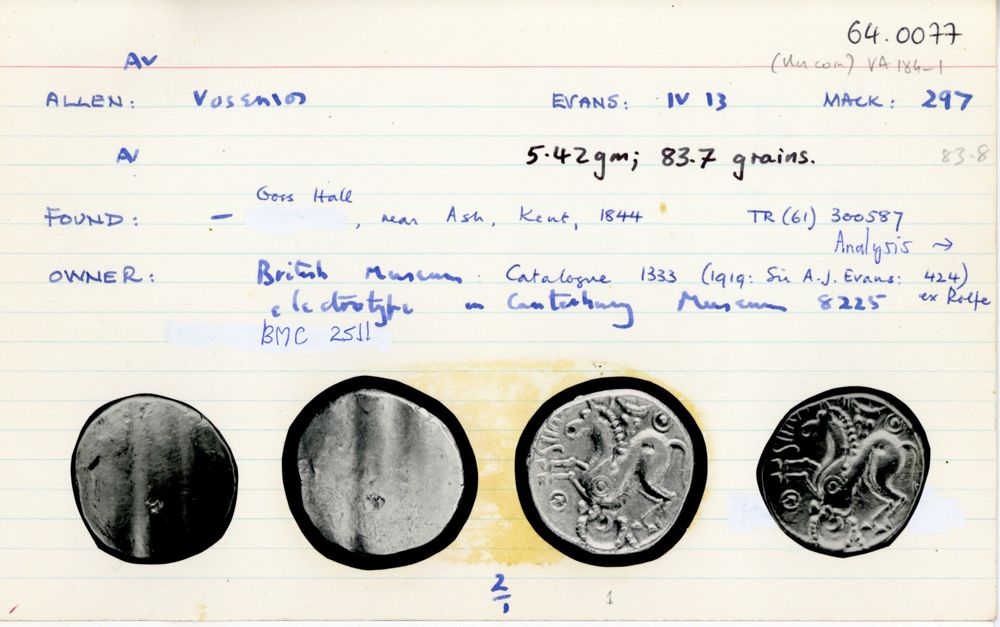 64.0077
Av
(Vu coin) VA 184-1
ALLEN: Vosenios EVANS: IV 13 MACK: 297
AV 5.42gm; 83.7 grains. 83.8
Goss Hall
FOUND: — , near Ash, Kent, 1844 TR (61) 300587
Analysis →
OWNER: British Museum: Catalogue 1333 (1919: Sir A.J. Evans: 424)
electrotype in Canterbury Museum 8225 ex Rolfe
BMC 2511
2/1 1